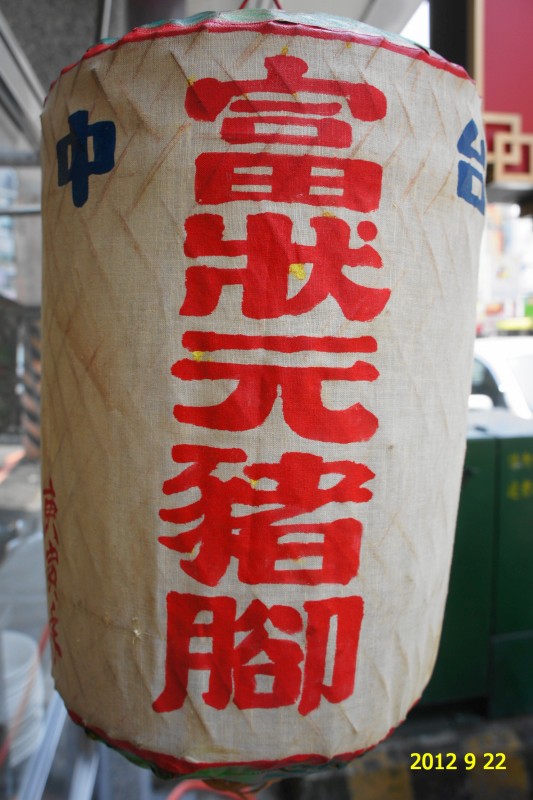 台
中
富狀元豬腳
2012 9 22